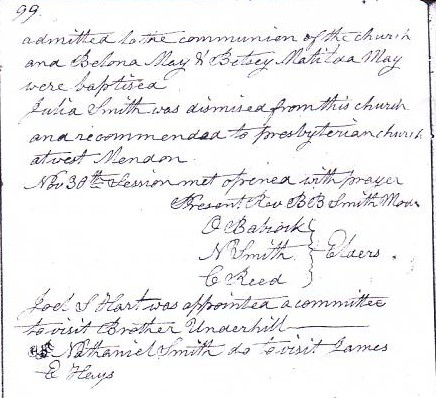 99.
admitted to the communion of the church
and Belona May & Betsey Matilda May
were baptised
Julia Smith was dismised from this church
and recommended to presbyterian church
at west Mendon.
Nov 30th Session met opened with prayer
Present Rev B B Smith Mod.
O Babcock
N Smith } Elders.
C Reed
Joel S Hart was appointed a committee
to visit Brother Underhill
Nathaniel Smith do to visit James
E Hays